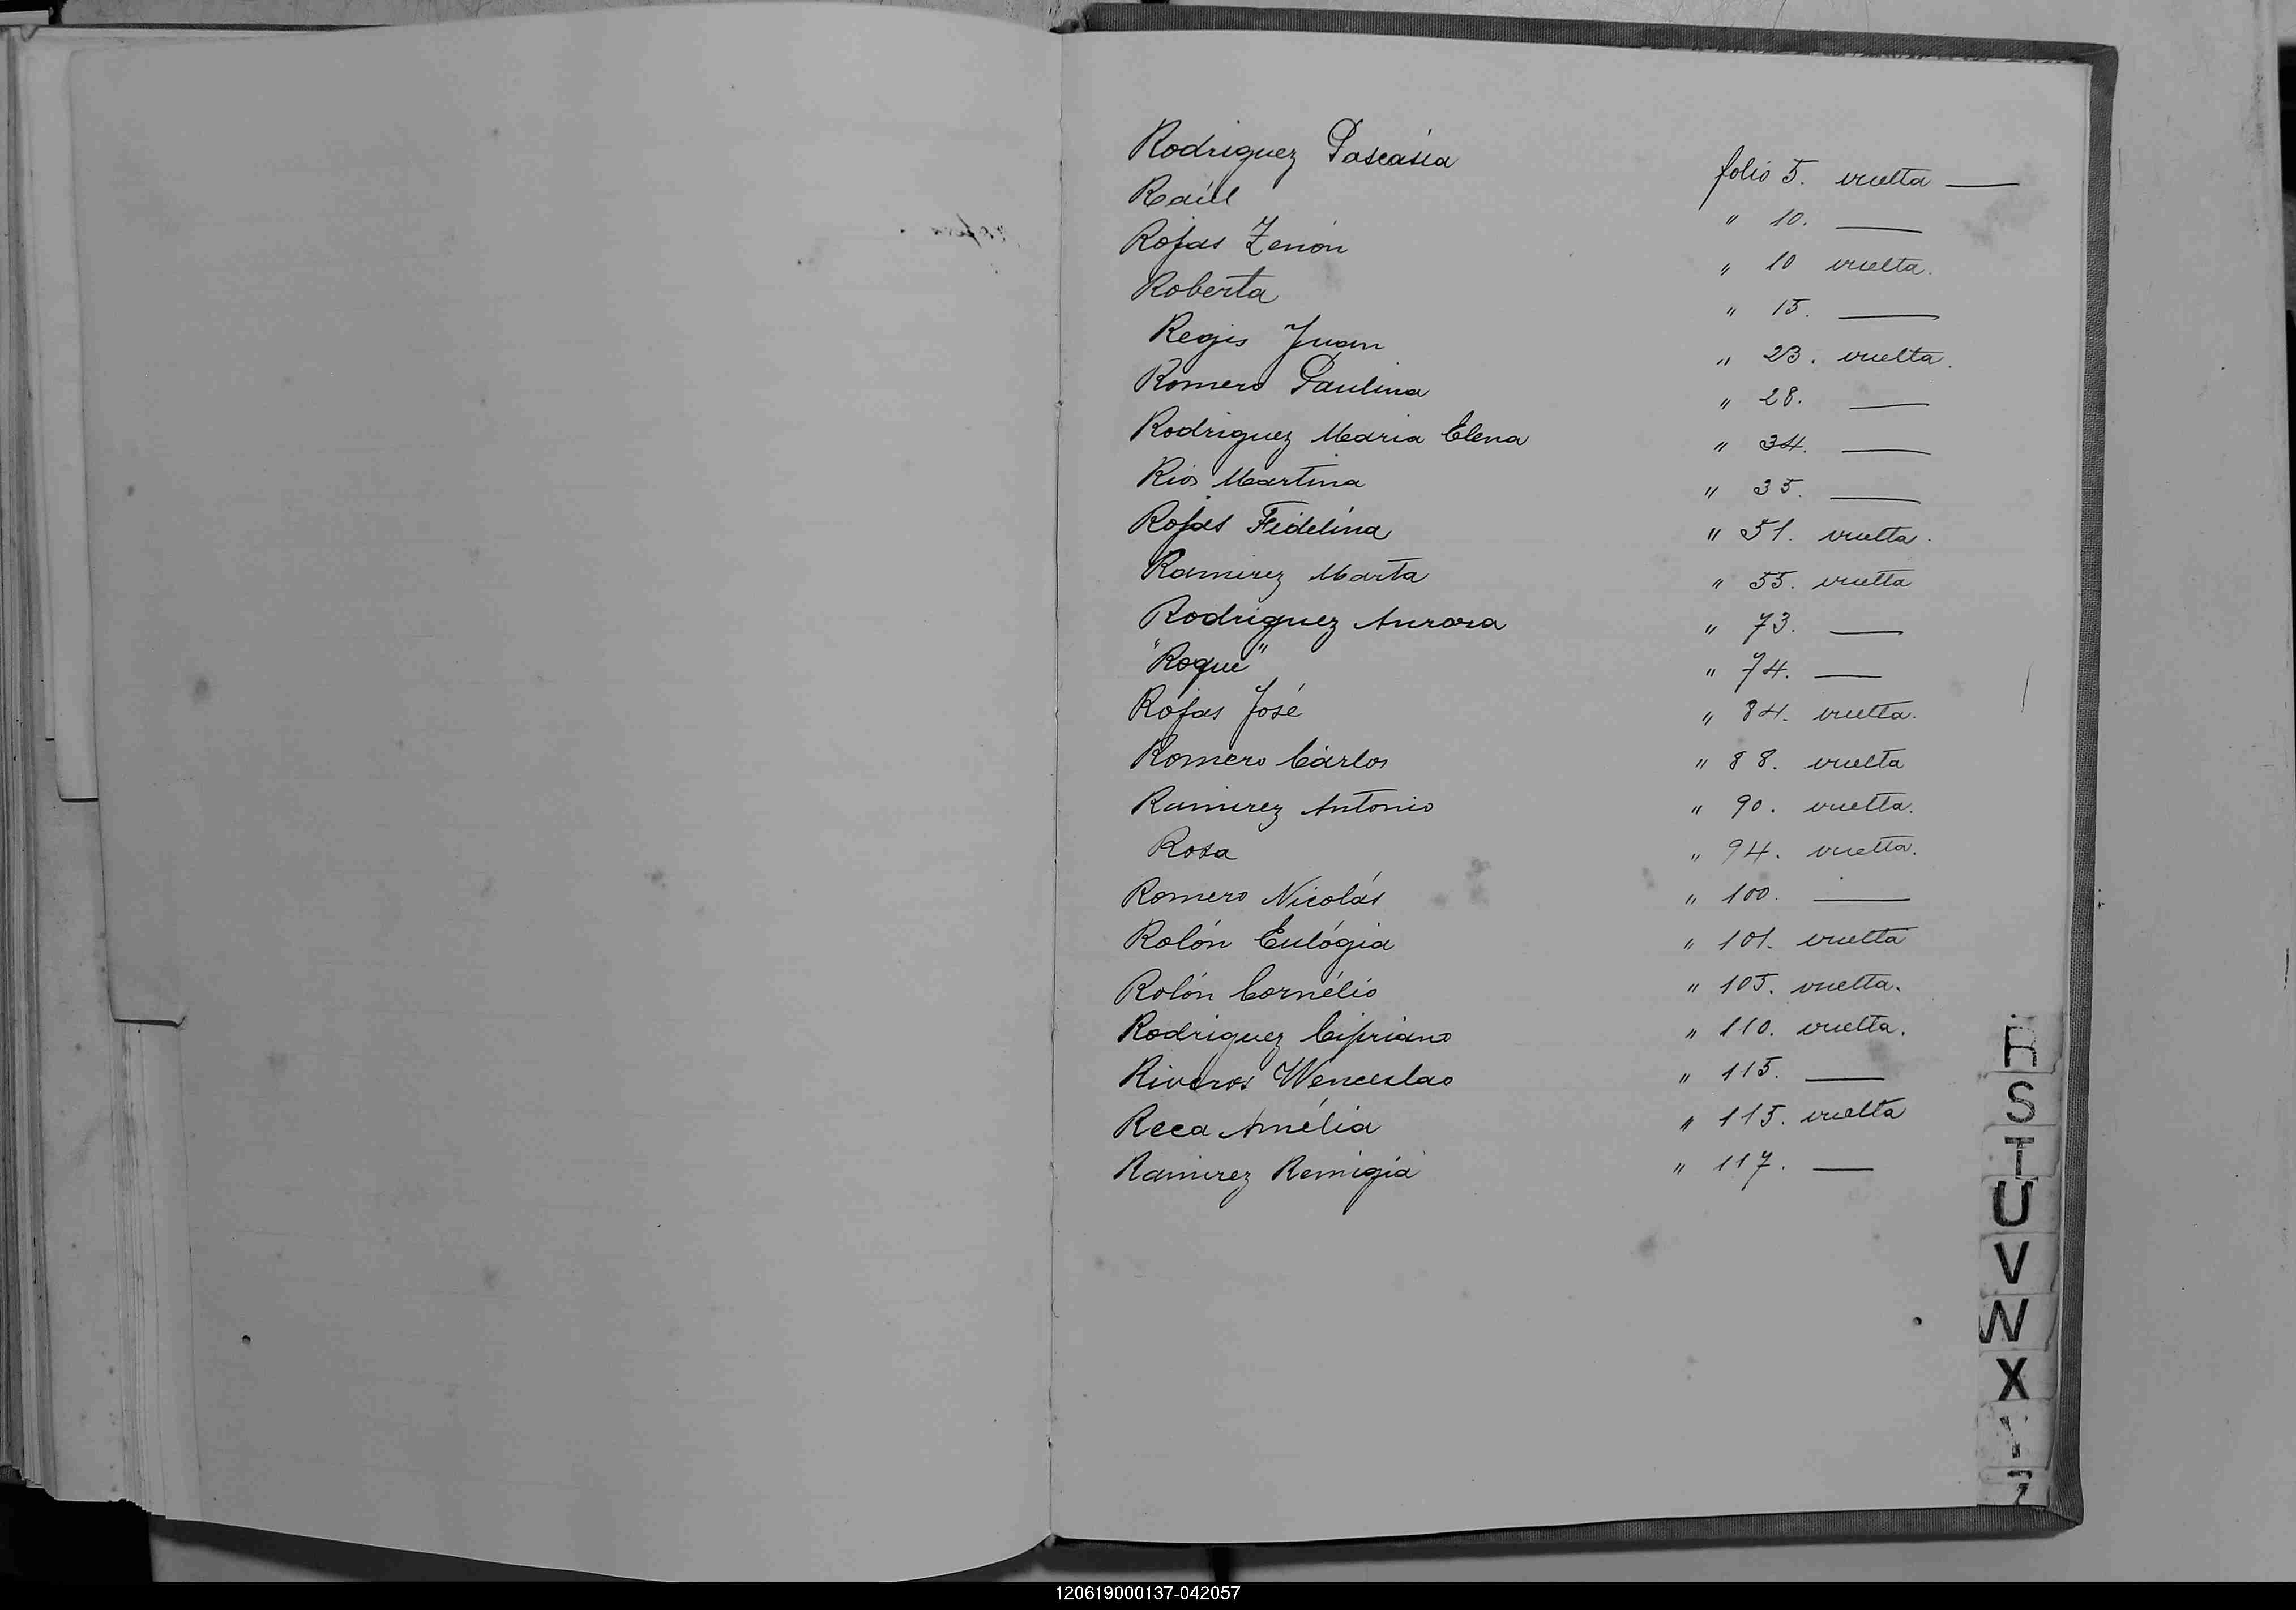 Rodriguez Pascasia folio 5. vuelta —
Raúl " 10. —
Rojas Zenón " 10 vuelta.
Roberta " 15. —
Regis Juan " 23. vuelta.
Romero Paulina " 28. —
Rodriguez Maria Elena " 34. —
Rios Martina " 35. —
Rojas Fidelina " 51. vuelta.
Ramirez Marta " 55. vuelta
Rodriguez Aurora " 73. —
"Roque" " 74. —
Rojas José " 84. vuelta.
Romero Cárlos " 88. vuelta
Ramirez Antonio " 90. vuelta.
Rosa " 94. vuelta.
Romero Nicolás " 100. —
Rolón Eulógia " 101. vuelta
Rolón Cornélio " 105. vuelta.
Rodriguez Cipriano " 110. vuelta.
Riveros Wenceslao " 115. —
Reca Amélia " 115. vuelta
Ramirez Remigia " 117. —
R
S
T
U
V
W
X
Y
Z
120619000137-042057